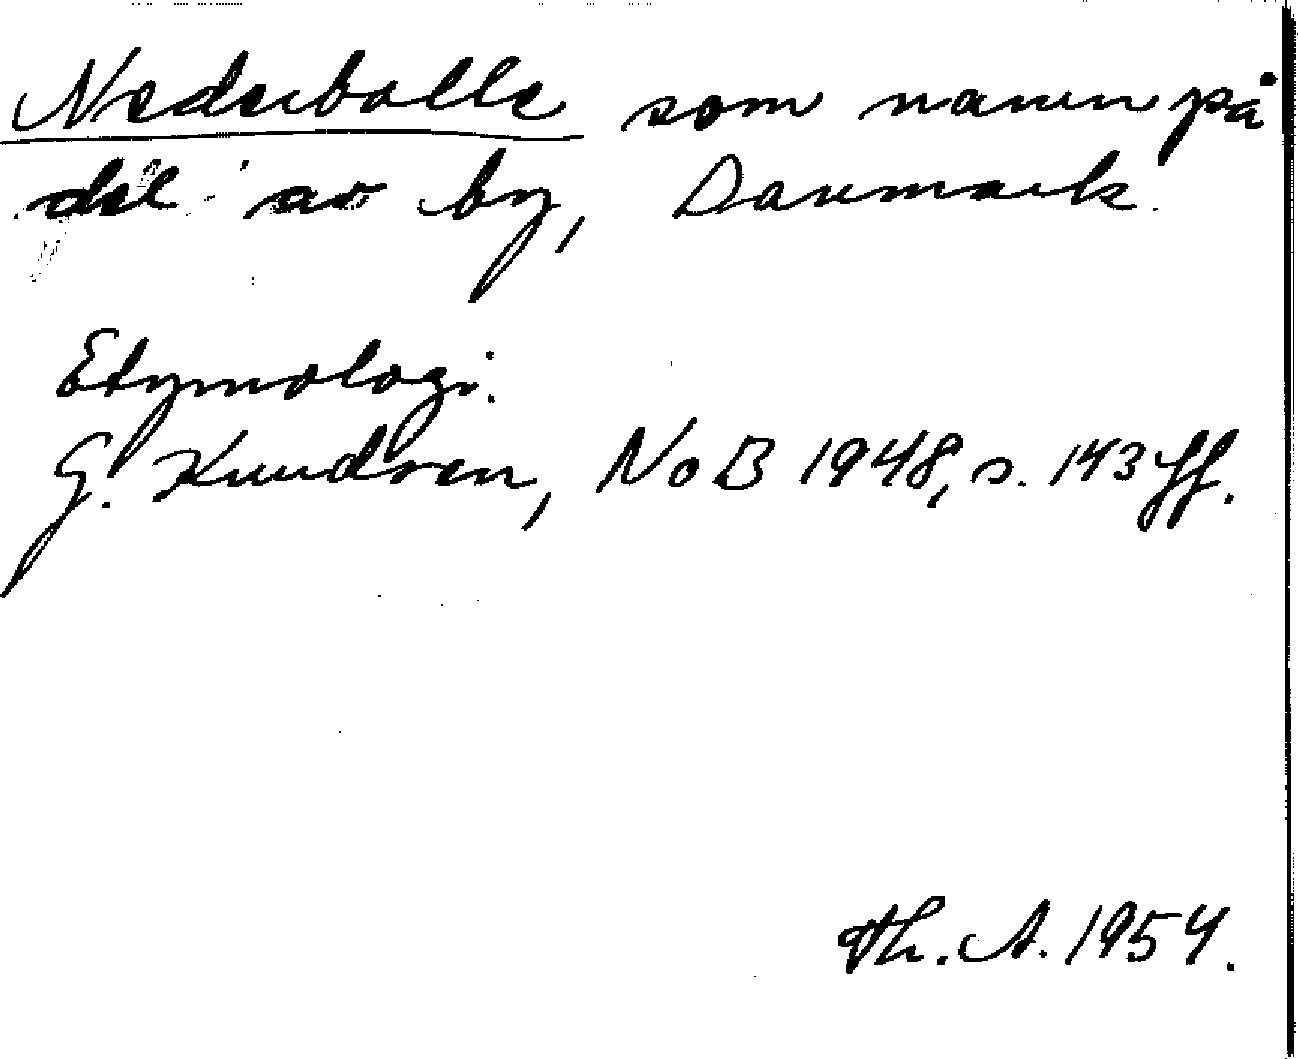 Nederballe som namn på
del av by, Danmark.
Etymologi:
G. Knudsen, NoB 1948, s. 143 ff.
Th. A. 1954.